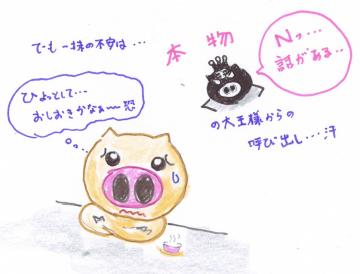 でも一抹の不安は・・・
本物
Nっ・・・
話がある・・
ひょっとして・・・
おしおきかなぁ〜恐
の大王様からの
呼び出し・・・汗